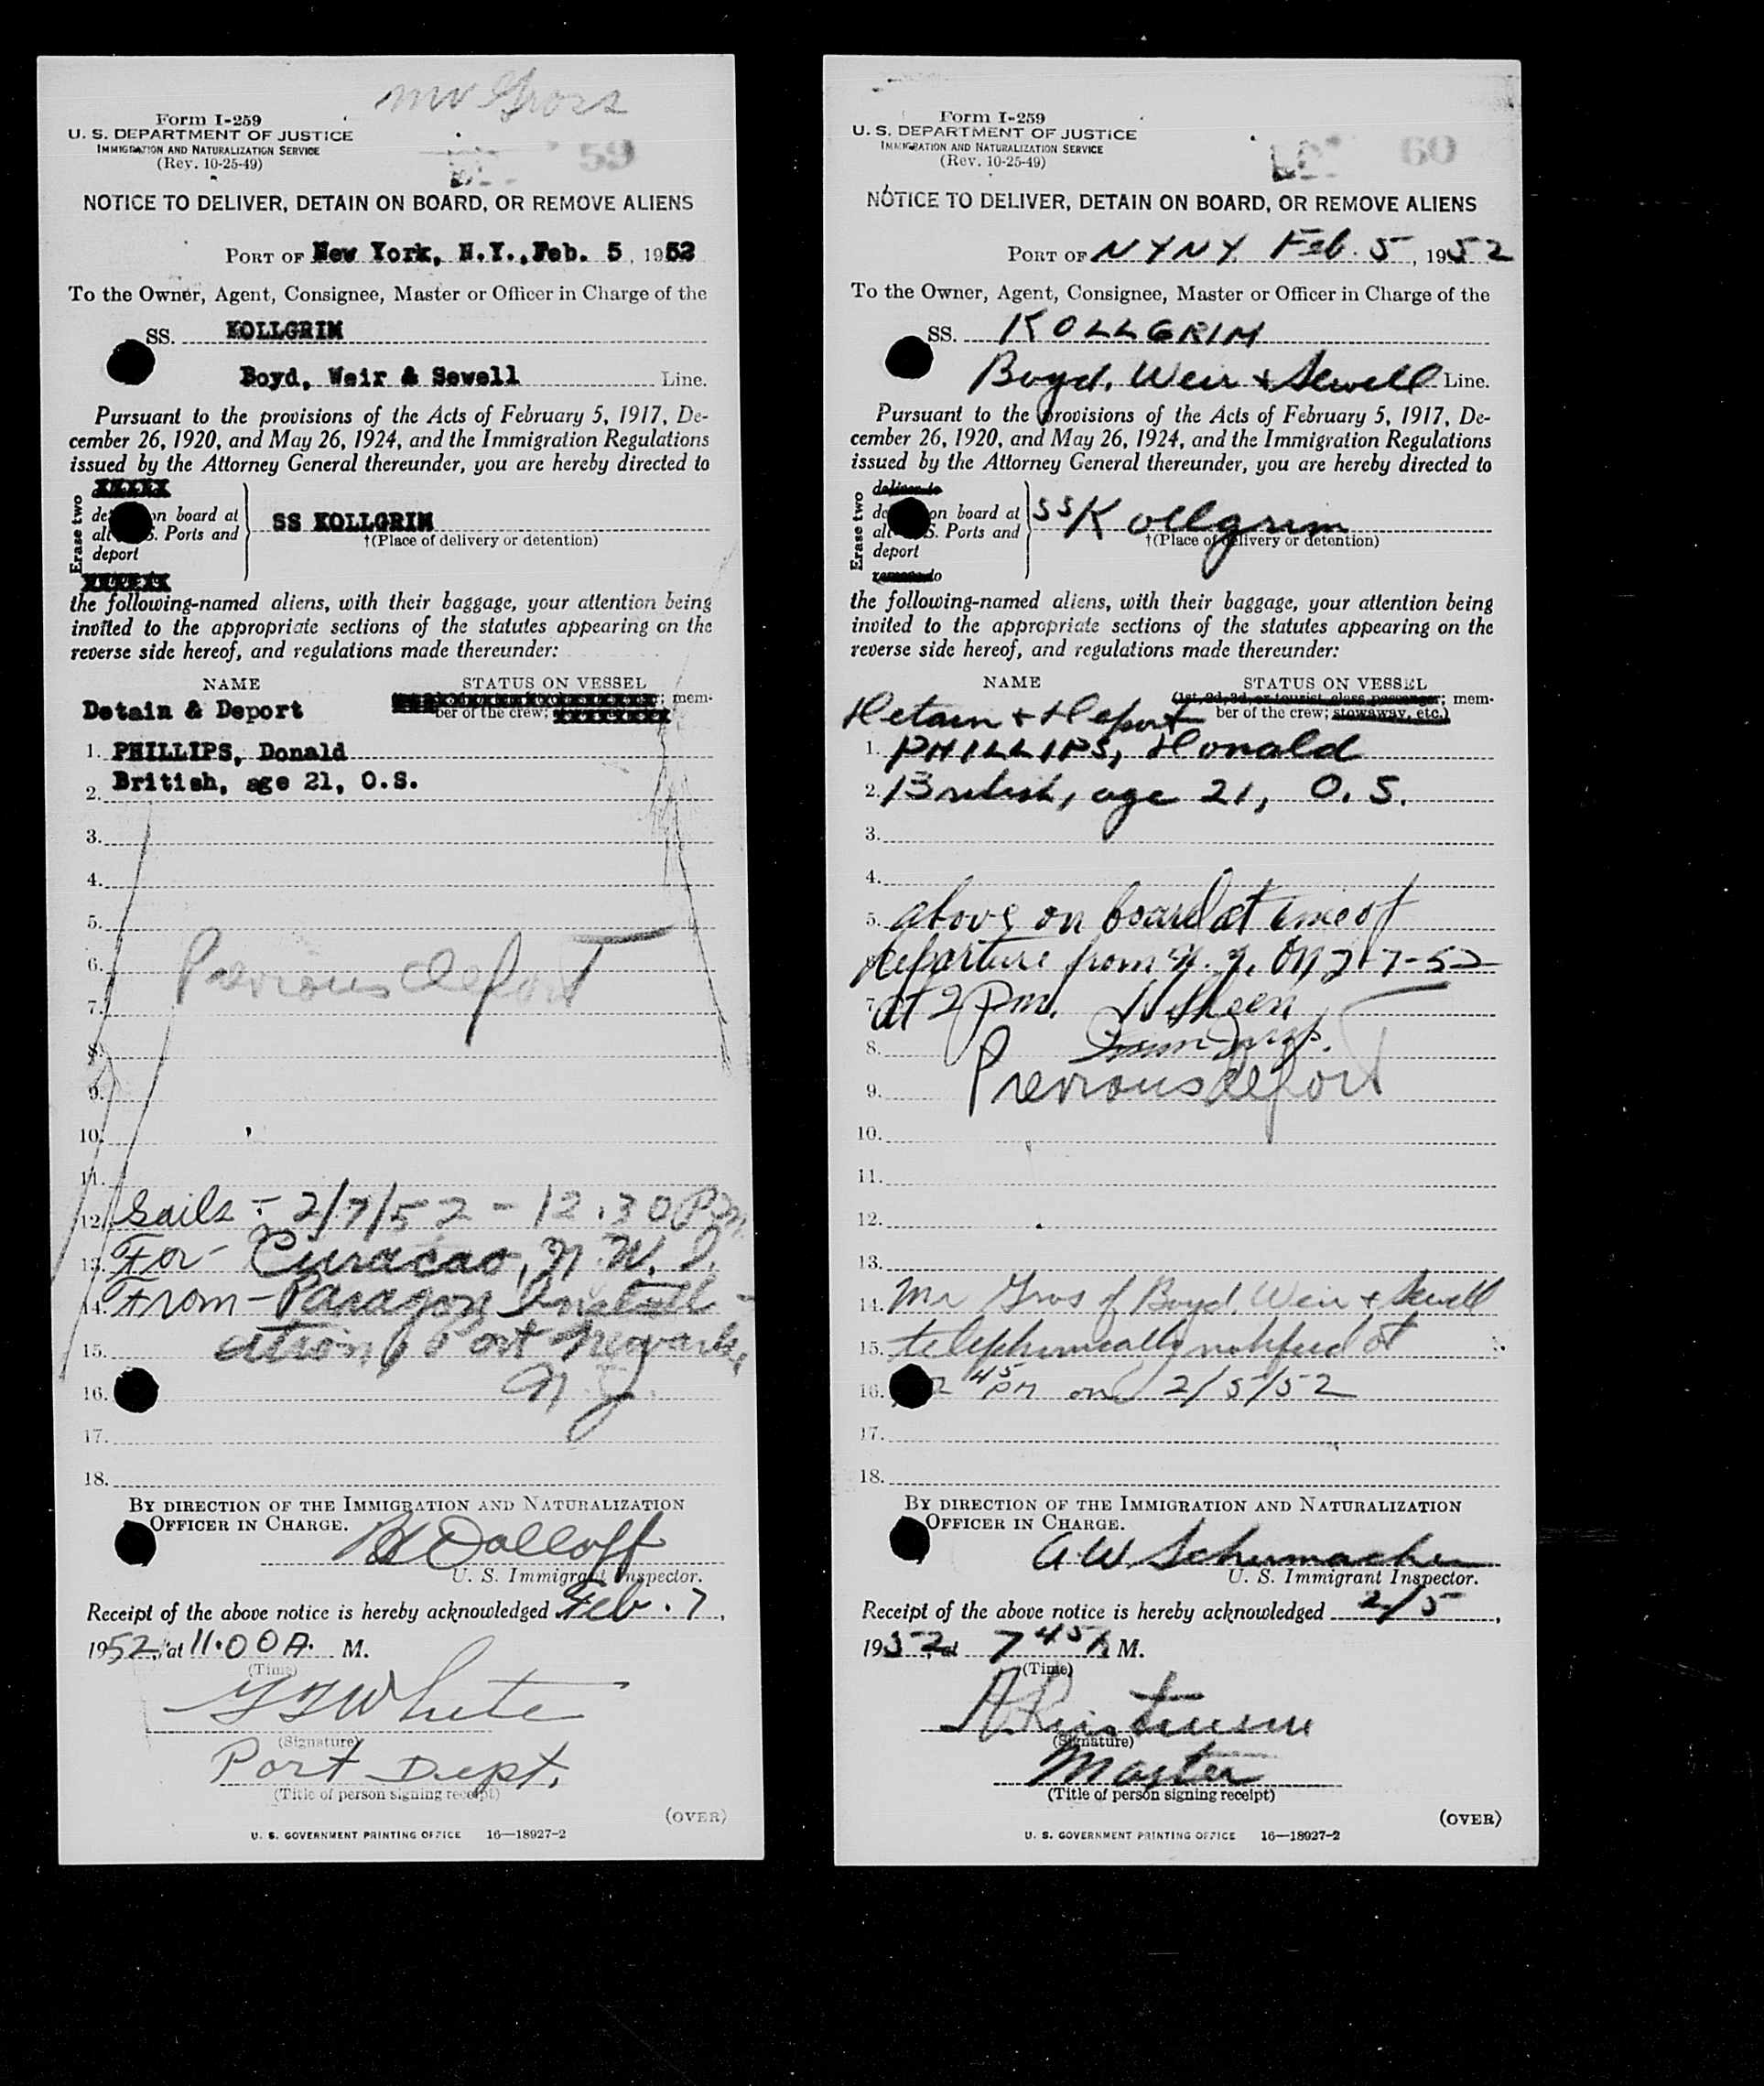 Mr Gros
Form I-259
U. S. DEPARTMENT OF JUSTICE
IMMIGRATION AND NATURALIZATION SERVICE
(Rev. 10-25-49)
59
NOTICE TO DELIVER, DETAIN ON BOARD, OR REMOVE ALIENS
PORT OF New York, N.Y., Feb. 5, 1952
To the Owner, Agent, Consignee, Master or Officer in Charge of the
SS. KOLLGRIM
Boyd, Weir & Sewell Line.
Pursuant to the provisions of the Acts of February 5, 1917, De-
cember 26, 1920, and May 26, 1924, and the Immigration Regulations
issued by the Attorney General thereunder, you are hereby directed to
Erase two
on board at
Ports and
deport
SS KOLLGRIM
†(Place of delivery or detention)
the following-named aliens, with their baggage, your attention being
invited to the appropriate sections of the statutes appearing on the
reverse side hereof, and regulations made thereunder:
NAME STATUS ON VESSEL
; mem-
Detain & Deport ber of the crew;
1. PHILLIPS, Donald
2. British, age 21, O.S.
3.
4.
5.
Previous deport
6.
7.
8.
9.
10.
11.
12. Sails - 2/7/52 - 12.30 Pm
13. For Curacao, N.W.I.
14. From - Paragon Install-
15. ation, Port Newark,
16. N.J.
17.
18.
BY DIRECTION OF THE IMMIGRATION AND NATURALIZATION
OFFICER IN CHARGE.
U. S. Immigrant Inspector.
Receipt of the above notice is hereby acknowledged Feb. 7,
1952, at 11.00 A. M.
(Time)
White
(Signature)
Port Dept.
(Title of person signing receipt)
(OVER)
U. S. GOVERNMENT PRINTING OFFICE 16—18927-2
Form I-259
U. S. DEPARTMENT OF JUSTICE
IMMIGRATION AND NATURALIZATION SERVICE
(Rev. 10-25-49)
60
NOTICE TO DELIVER, DETAIN ON BOARD, OR REMOVE ALIENS
PORT OF NYNY Feb. 5, 1952
To the Owner, Agent, Consignee, Master or Officer in Charge of the
SS. KOLLGRIM
Boyd, Weir & Sewell Line.
Pursuant to the provisions of the Acts of February 5, 1917, De-
cember 26, 1920, and May 26, 1924, and the Immigration Regulations
issued by the Attorney General thereunder, you are hereby directed to
Erase two
deliver to
on board at
Ports and
deport
SS Kollgrim
†(Place of delivery or detention)
the following-named aliens, with their baggage, your attention being
invited to the appropriate sections of the statutes appearing on the
reverse side hereof, and regulations made thereunder:
NAME STATUS ON VESSEL
(1st, 2d, 3d, or tourist class passenger; mem-
Detain & Deport ber of the crew; stowaway, etc.)
1. PHILLIPS, Donald
2. British, age 21, O.S.
3.
4.
5. above on board at time of
6. departure from N.Y. on 2-7-52
7. at 2 Pm.
8. Imm Insp.
9. Previous deport
10.
11.
12.
13.
14. Mr Gros of Boyd, Weir & Sewell
15. telephonically notified at
16. 2 45 PM on 2/5/52
17.
18.
BY DIRECTION OF THE IMMIGRATION AND NATURALIZATION
OFFICER IN CHARGE.
A.W. Schumacher
U. S. Immigrant Inspector.
Receipt of the above notice is hereby acknowledged 2/5,
1952 at 7 45 A M.
(Time)
(Signature)
Master
(Title of person signing receipt)
(OVER)
U. S. GOVERNMENT PRINTING OFFICE 16—18927-2